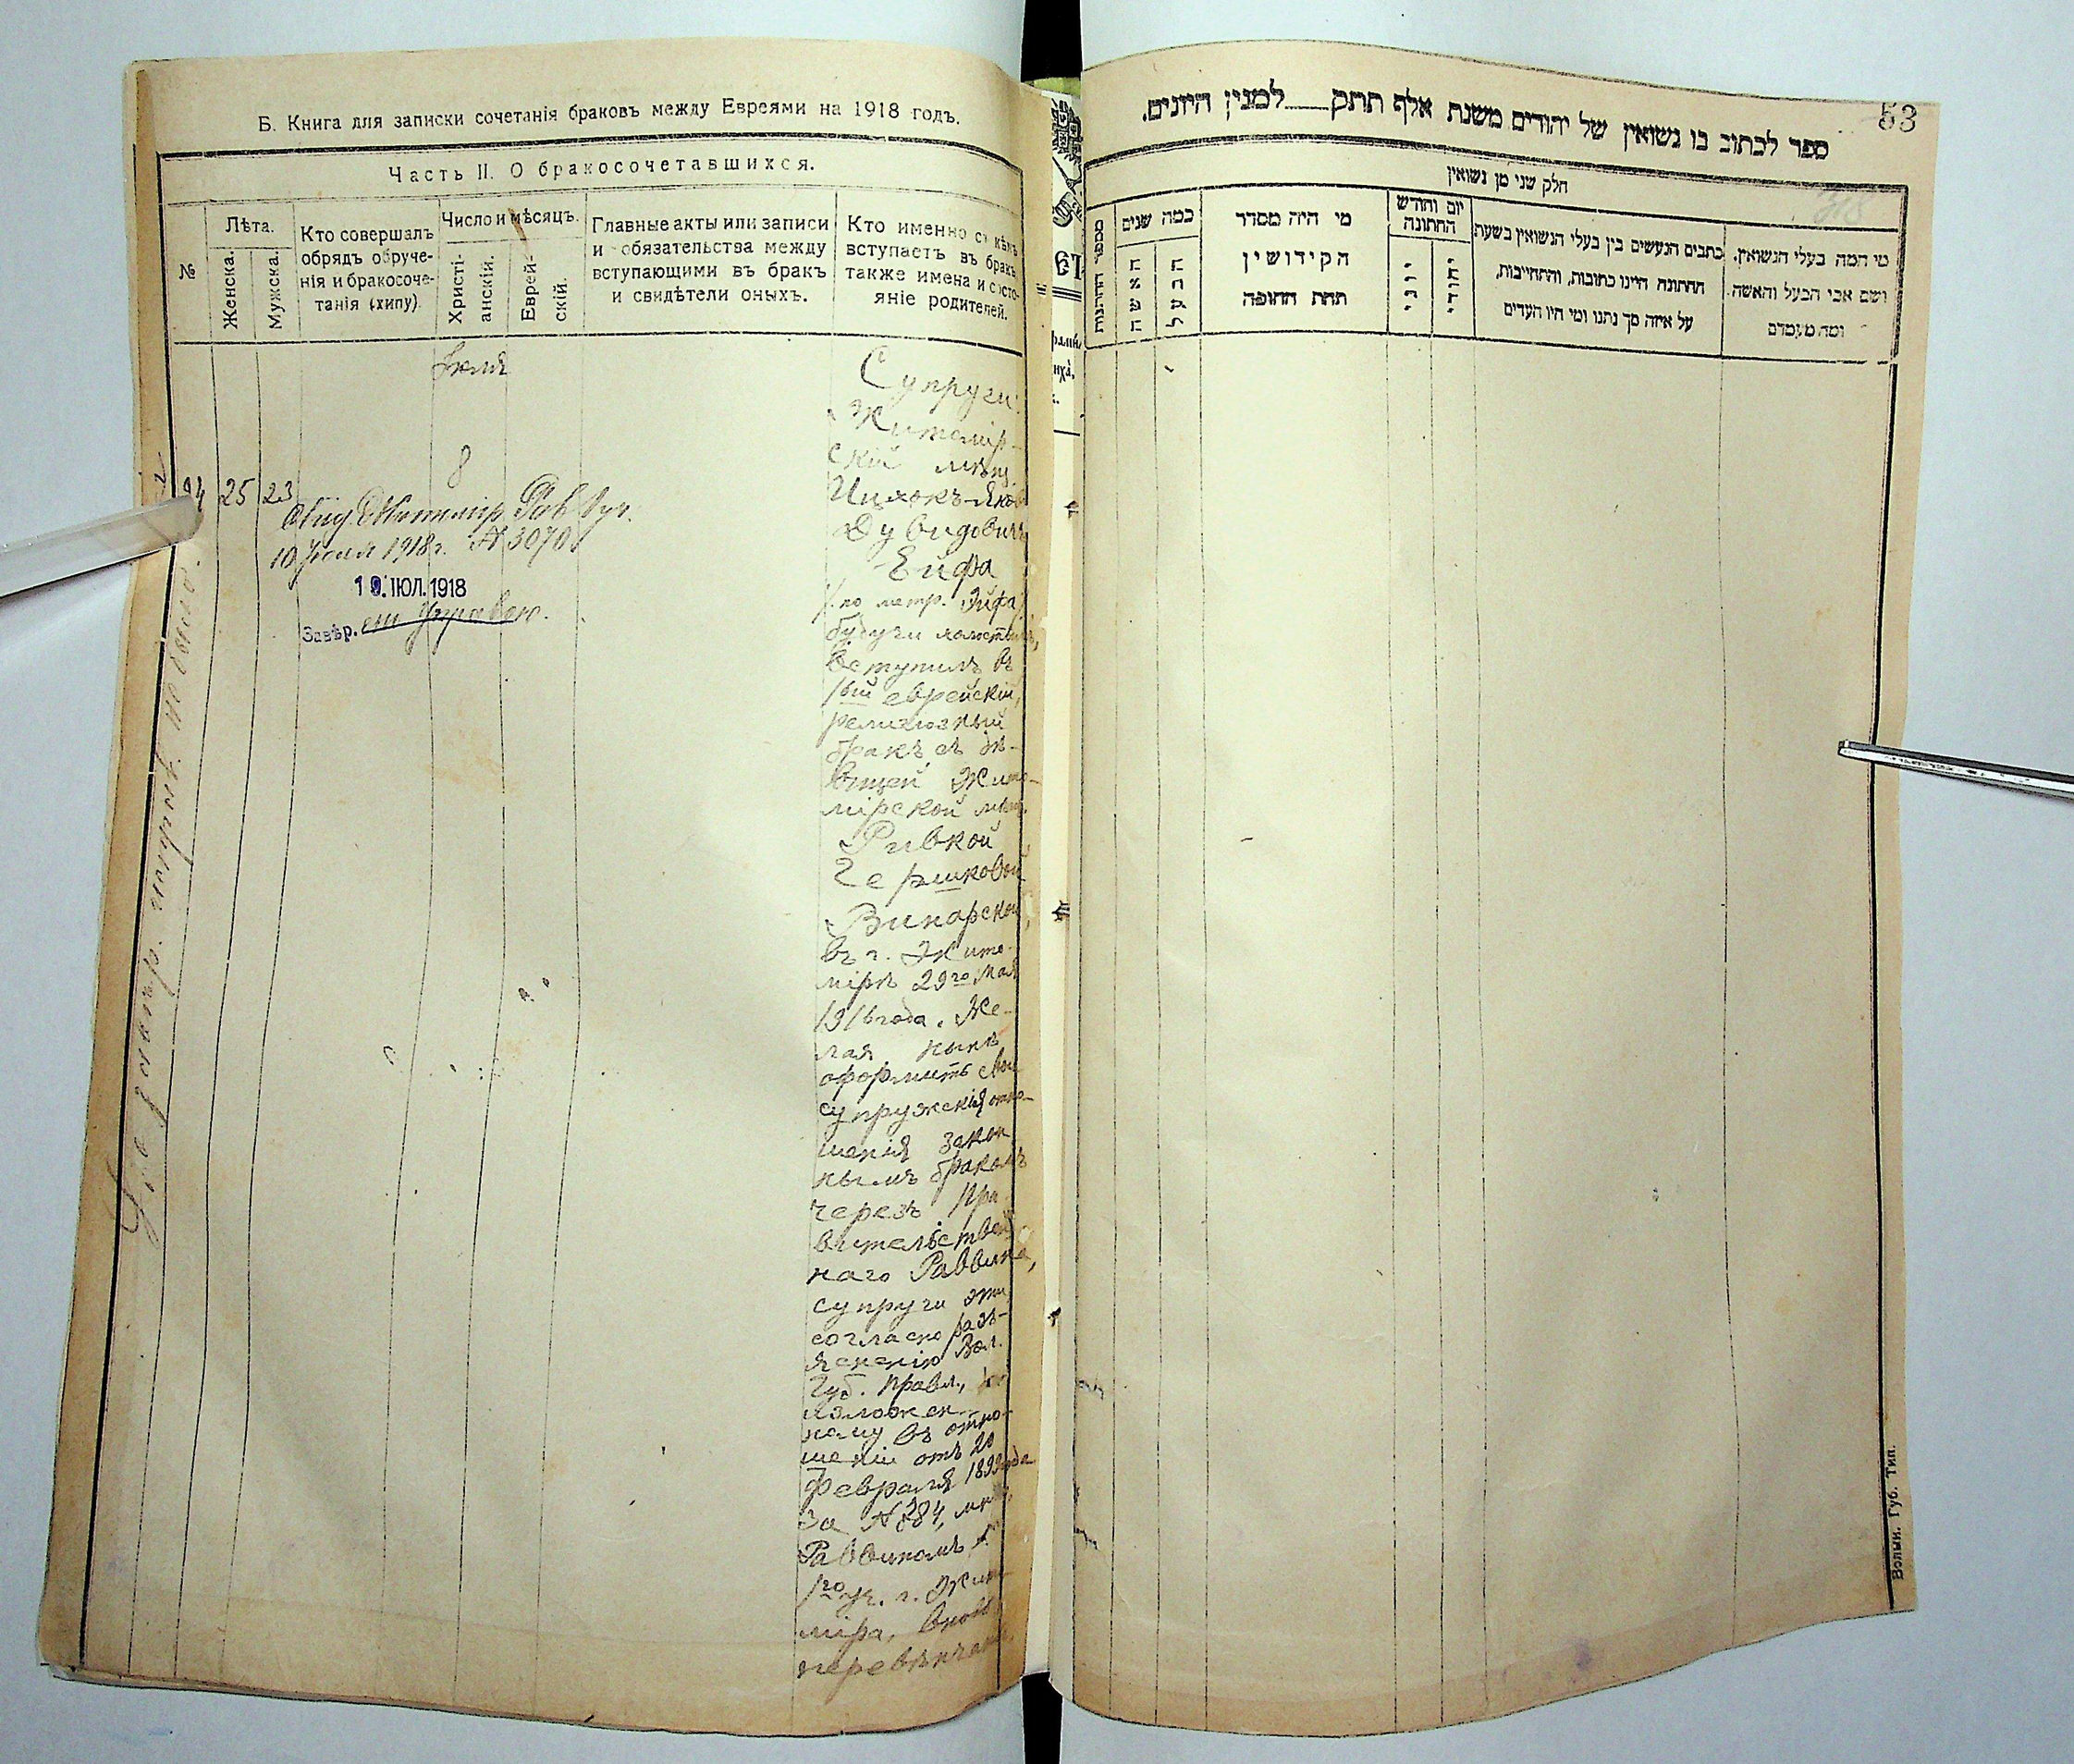 Б. Книга для записки сочетанія браковъ между Евреями на 1918 годъ.
Часть II. О бракосочетавшихся.
№
Лѣта.
Женска.
Мужска.
Кто совершалъ
обрядъ обруче-
нія и бракосоче-
танія (хипу).
Число и мѣсяцъ.
Христі-
анскій.
Еврей-
скій.
Главные акты или записи
и обязательства между
вступающими въ бракъ
и свидѣтели оныхъ.
Кто именно съ кѣмъ
вступаетъ въ бракъ
также имена и состо-
яніе родителей.
Іюля
8
25 23
10 Іюля 1918 г. № 3070
19. ІЮЛ. 1918
Завѣр.
Супруги:
Житомір-
скій мѣщ.
Ицхокъ-Яков
Дувидовичъ
Ейфа
(по метр. Эйфа)
будучи холостымъ,
вступилъ въ
1ый еврейскій
религіозный
бракъ съ дѣ-
вицей Жито-
мірской мѣщ.
Ривкой
Гершковой
Винарской
въ г. Жито-
мірѣ 29го Мая
1916 года. Же-
лая нынѣ
оформить свои
супружескія отно-
шенія закон
нымъ бракомъ
черезъ Пра
вительствен
наго Раввина,
супруги эти
согласно разъ-
ясненію Вол.
Губ. Правл.,
изложен-
ному въ отно-
шеніи отъ 20
Февраля 1899 года
за №384,
Раввиномъ
1го уч. г. Жито
міра, вновь
перевѣнчаны
ספר לכתוב בו נשואין של יהודים משנת אלף תתק לממנין היונים.
53
חלק שני מן נשואין
מספר החתונות
כמה שנים
האשה
הבעל
מי היה מסדר
הקידושין
תחת החופה
יום וחודש
החתונה
יוני
יהודי
כתבים הנעשים בין בעלי הנשואין בשעת
החתונה היינו כתובות, והתחייבות,
על איזה סך נתנו ומי היו העדים
מי המה בעלי הנשואין,
ושם אבי הבעל והאשה.
ומה מעמדם
Волын. Губ. Тип.